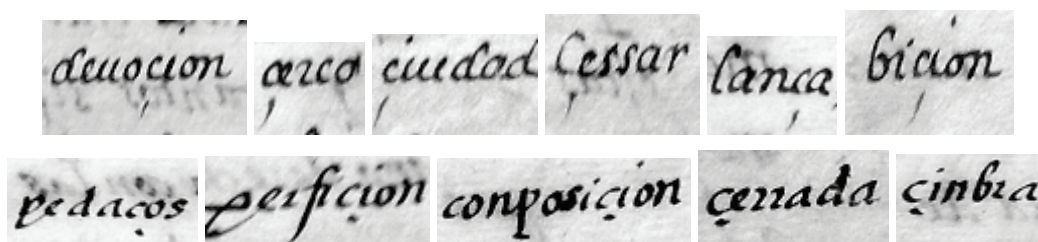 deuoçion çerco çiudad Çessar lança biçion
pedaços perfiçion conposiçion çerrada çinbra